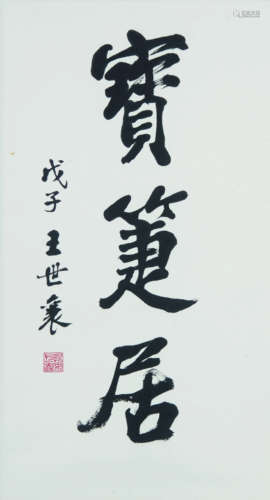 寶箑居
戊子 王世襄